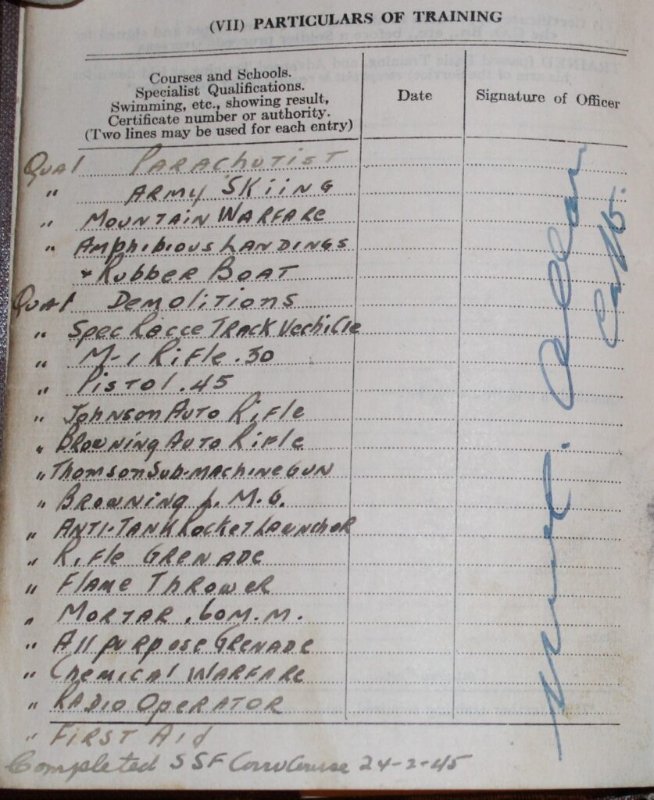 (VII) PARTICULARS OF TRAINING
Courses and Schools.
Specialist Qualifications.
Swimming, etc., showing result,
Certificate number or authority.
(Two lines may be used for each entry)
Date
Signature of Officer
Qual PARACHUTIST
" ARMY SKIING
" MOUNTAIN WARFARE
" AMPHIBIOUS LANDINGS
+ RUBBER BOAT
Qual DEMOLITIONS
" SPEC RACCE TRACK VECHILE
" M-1 RIFLE .30
" PISTOL .45
" JOHNSON AUTO RIFLE
" BROWNING AUTO RIFLE
" THOMSON SUB-MACHINE GUN
" BROWNING L.M.G.
" ANTI-TANK ROCKET LAUNCHER
" RIFLE GRENADE
" FLAME THROWER
" MORTAR .60 M.M.
" All PURPOSE GRENADE
" CHEMICAL WARFARE
" RADIO OPERATOR
" FIRST AID
Completed SSF 24-2-45